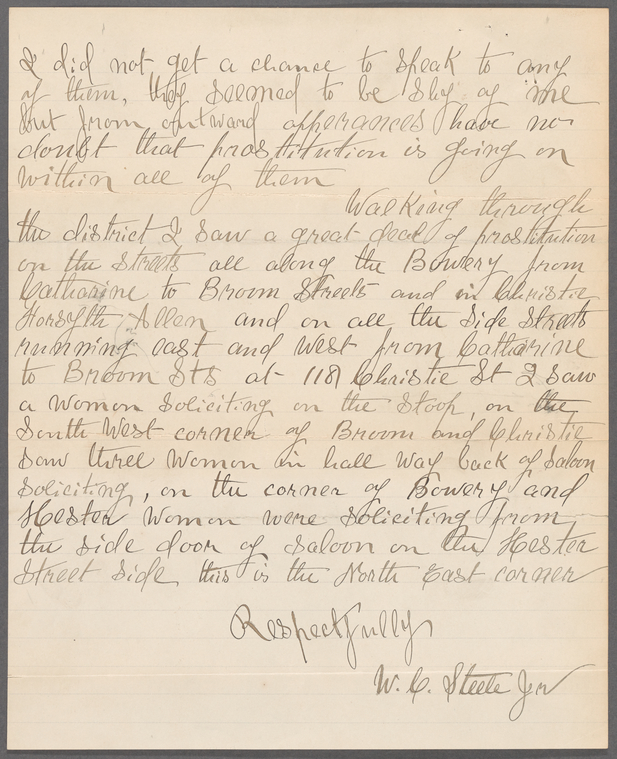 I did not get a chance to speak to any
of them, they seemed to be shy of me
but from outward apperances have no
doubt that prostitution is going on
within all of them
Walking through
the district I saw a great deal of prostitution
on the streets all along the Bowery from
Catharine to Broom Streets and in Christie
Forsyth Allen and on all the side streets
running east and west from Catharine
to Broom Sts at 118 Christie St I saw
a woman soliciting on the stoop, on the
South West corner of Broom and Christie
saw three women in hall way back of saloon
soliciting, on the corner of Bowery and
Hester women were soliciting from
the side door of saloon on the Hester
Street side this is the North East corner
Respectfully
W. C. Steele Jr